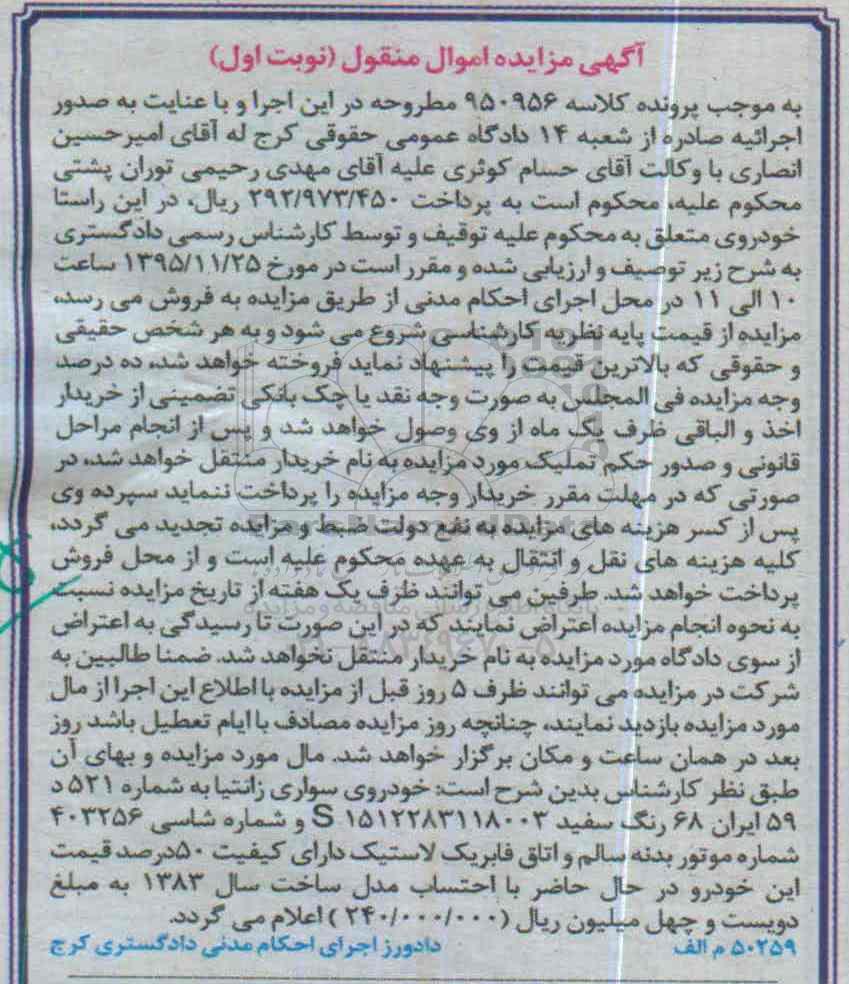 آگهی مزایده اموال منقول (نوبت اول)
به موجب پرونده کلاسه ۹۵۰۹۵۶ مطروحه در این اجرا و با عنایت به صدور
اجرائیه صادره از شعبه ۱۴ دادگاه عمومی حقوقی کرج له آقای امیرحسین
انصاری با وکالت آقای حسام کوثری علیه آقای مهدی رحیمی توران پشتی
محکوم علیه، محکوم است به پرداخت ۲۹۲/۹۷۳/۴۵۰ ریال، در این راستا
خودروی متعلق به محکوم علیه توقیف و توسط کارشناس رسمی دادگستری
به شرح زیر توصیف و ارزیابی شده و مقرر است در مورخ ۱۳۹۵/۱۱/۲۵ ساعت
۱۰ الی ۱۱ در محل اجرای احکام مدنی از طریق مزایده به فروش می رسد،
مزایده از قیمت پایه نظریه کارشناسی شروع می شود و به هر شخص حقیقی
و حقوقی که بالاترین قیمت را پیشنهاد نماید فروخته خواهد شد، ده درصد
وجه مزایده فی المجلس به صورت وجه نقد یا چک بانکی تضمینی از خریدار
اخذ و الباقی ظرف یک ماه از وی وصول خواهد شد و پس از انجام مراحل
قانونی و صدور حکم تملیک مورد مزایده به نام خریدار منتقل خواهد شد، در
صورتی که در مهلت مقرر خریدار وجه مزایده را پرداخت ننماید سپرده وی
پس از کسر هزینه های مزایده به نفع دولت ضبط و مزایده تجدید می گردد،
کلیه هزینه های نقل و انتقال به عهده محکوم علیه است و از محل فروش
پرداخت خواهد شد. طرفین می توانند ظرف یک هفته از تاریخ مزایده نسبت
به نحوه انجام مزایده اعتراض نمایند که در این صورت تا رسیدگی به اعتراض
از سوی دادگاه مورد مزایده به نام خریدار منتقل نخواهد شد. ضمنا طالبین به
شرکت در مزایده می توانند ظرف ۵ روز قبل از مزایده با اطلاع این اجرا از مال
مورد مزایده بازدید نمایند، چنانچه روز مزایده مصادف با ایام تعطیل باشد روز
بعد در همان ساعت و مکان برگزار خواهد شد. مال مورد مزایده و بهای آن
طبق نظر کارشناس بدین شرح است: خودروی سواری زانتیا به شماره ۵۲۱ د
۵۹ ایران ۶۸ رنگ سفید S ۱۵۱۲۲۸۳۱۱۸۰۰۳ و شماره شاسی ۴۰۳۲۵۶
شماره موتور بدنه سالم و اتاق فابریک لاستیک دارای کیفیت ۵۰درصد قیمت
این خودرو در حال حاضر با احتساب مدل ساخت سال ۱۳۸۳ به مبلغ
دویست و چهل میلیون ریال (۲۴۰/۰۰۰/۰۰۰) اعلام می گردد.
۵۰۲۵۹ م الف دادورز اجرای احکام مدنی دادگستری کرج